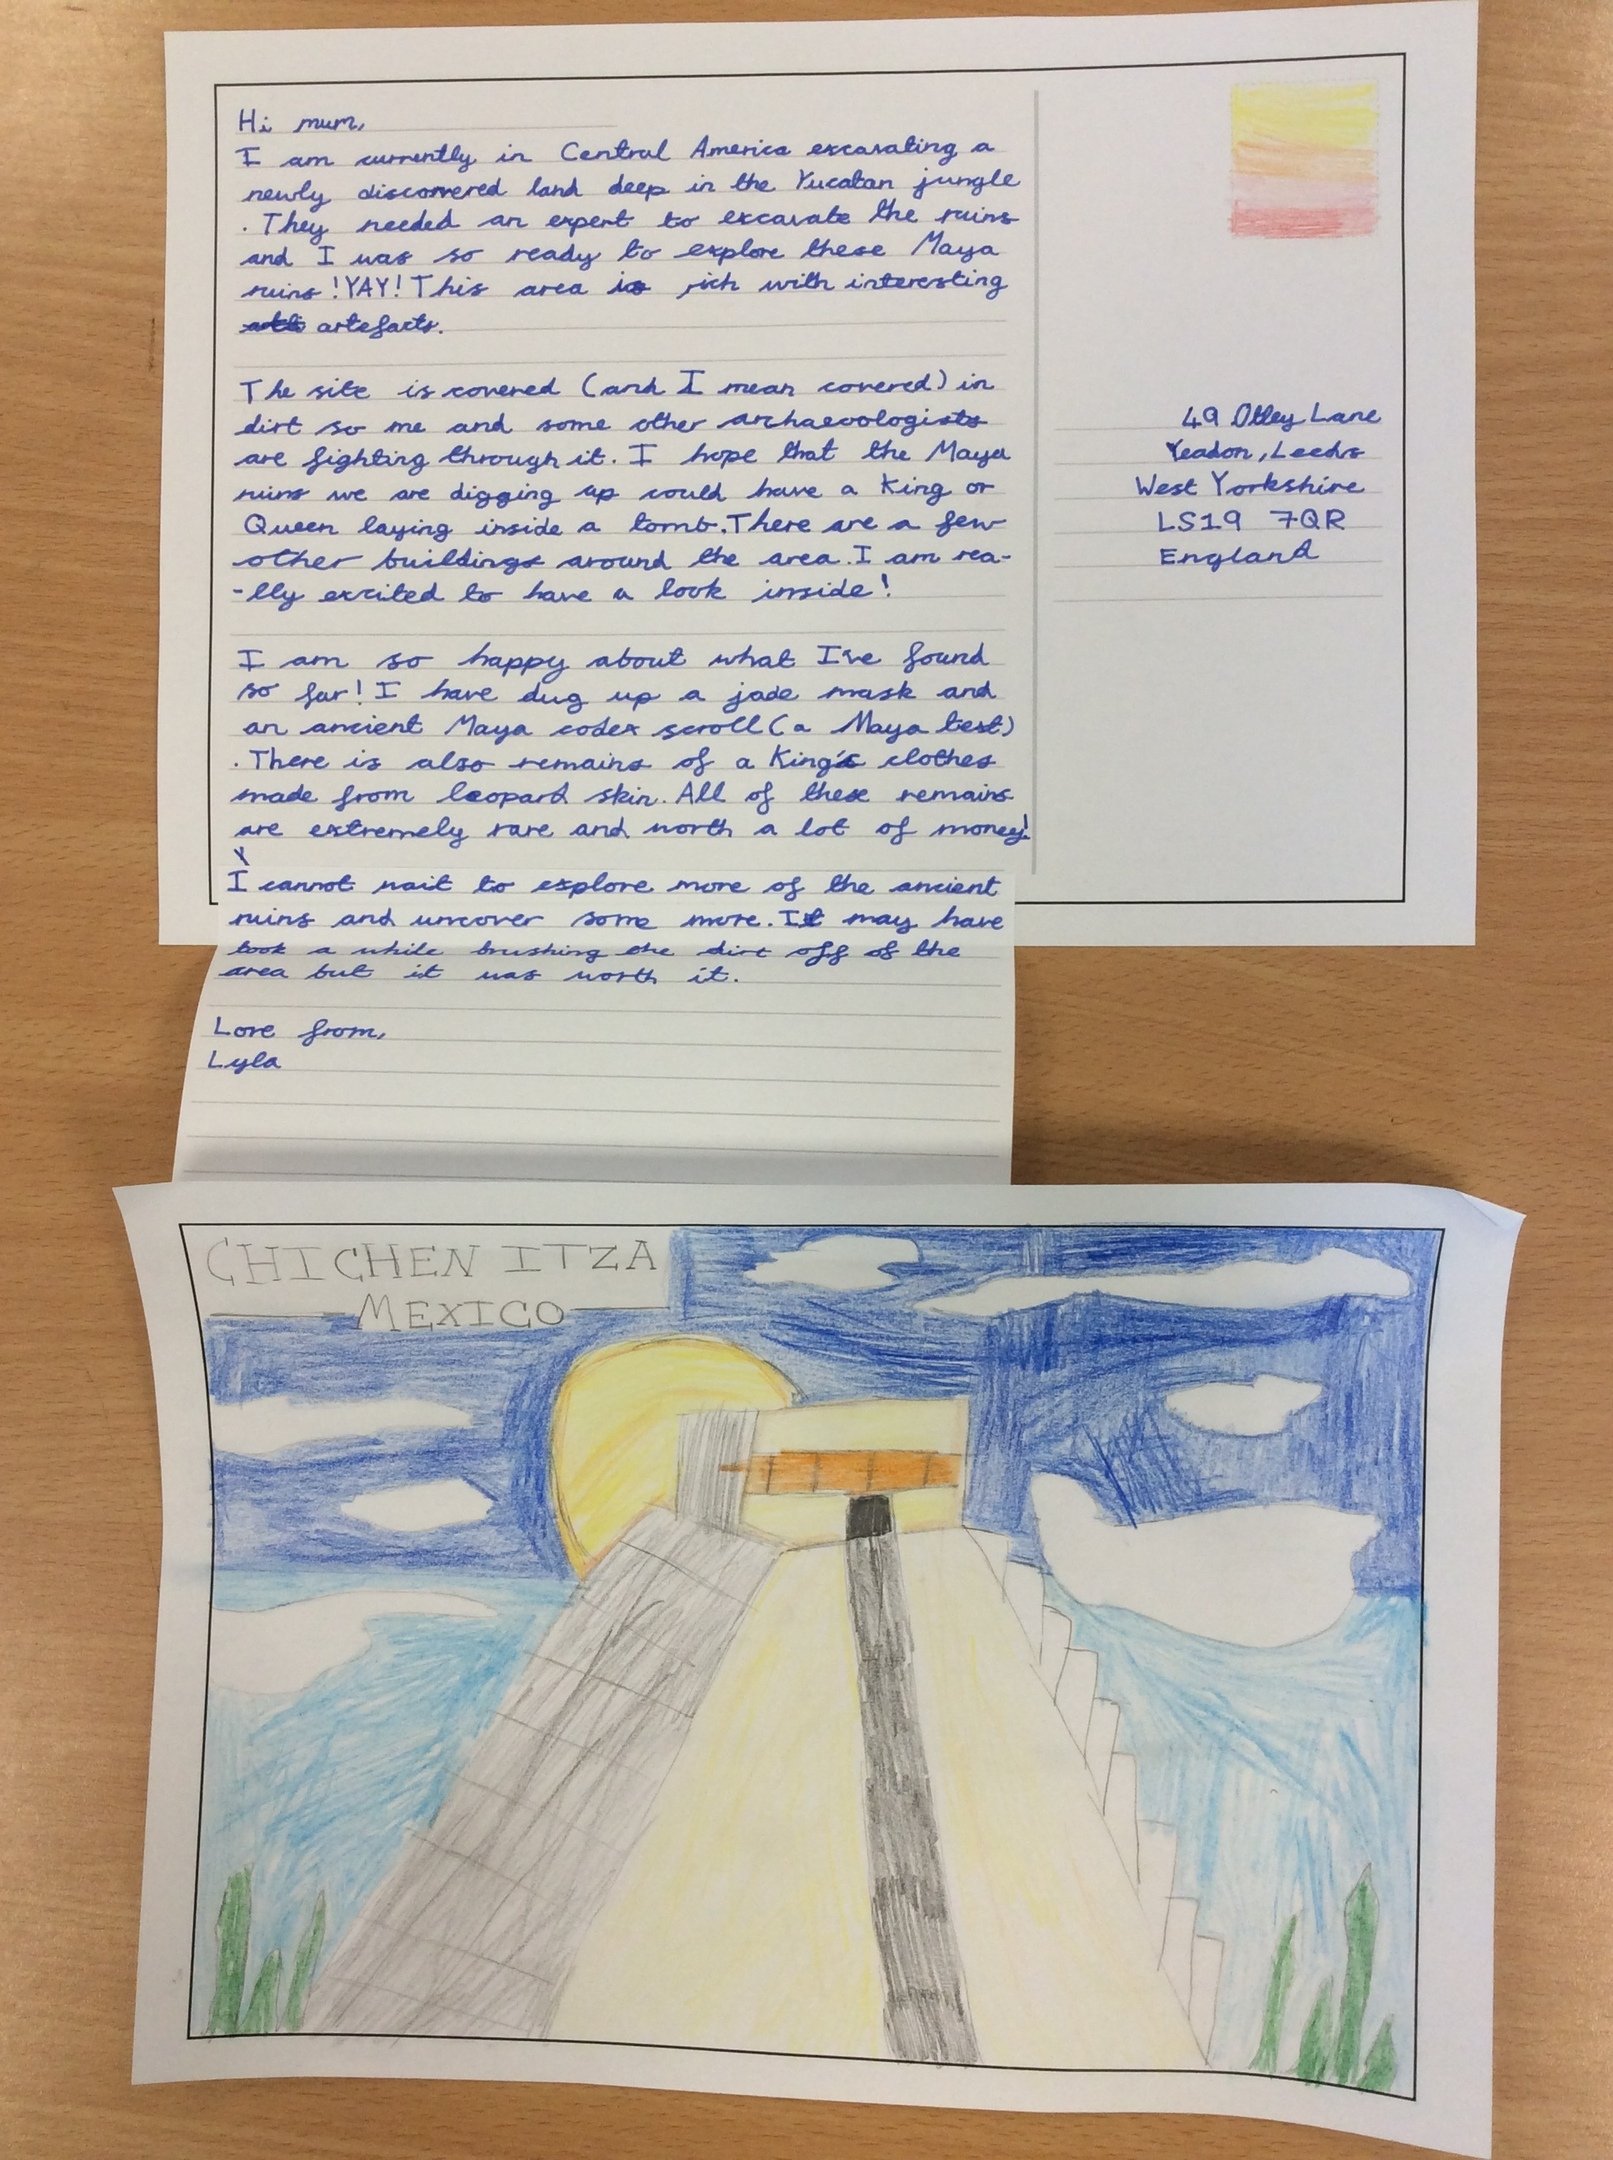 Hi mum,
I am currently in Central America excavating a
newly discovered land deep in the Yucatan jungle
. They needed an expert to excavate the ruins
and I was so ready to explore these Maya
ruins! YAY! This area is rich with interesting
artefacts.
The site is covered (and I mean covered) in
dirt so me and some other archaeologists
are fighting through it. I hope that the Maya
ruins we are digging up could have a King or
Queen laying inside a tomb. There are a few
other buildings around the area. I am rea-
-lly excited to have a look inside!
I am so happy about what I've found
so far! I have dug up a jade mask and
an ancient Maya codex scroll (a Maya text)
. There is also remains of a King's clothes
made from leopard skin. All of these remains
are extremely rare and worth a lot of money!
I cannot wait to explore more of the ancient
ruins and uncover some more. It may have
took a while brushing the dirt off of the
area but it was worth it.
Love from,
Lyla
49 Otley Lane
Yeadon, Leeds
West Yorkshire
LS19 7QR
England
CHICHEN ITZA
MEXICO